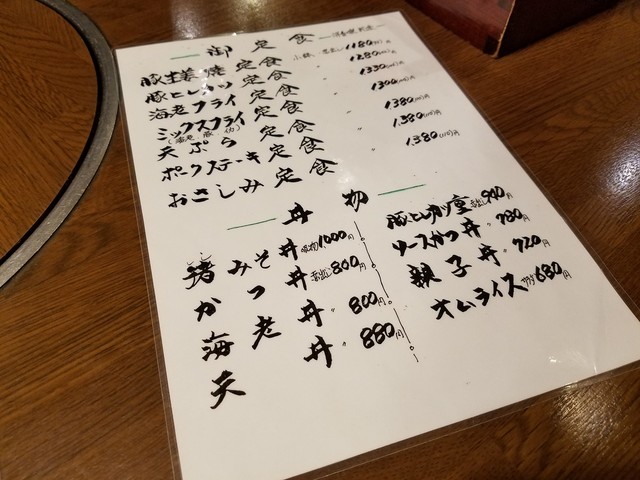 御定食
豚生姜焼定食 小鉢、 1180
豚ヒレカツ定食 〃 1280
海老フライ定食 〃 1330
ミックスフライ定食 〃 1300
天ぷら定食 〃 1380
ポークステーキ定食 〃 1380
おさしみ定食 〃 1380
丼物
みそ丼 吸物1000円
かつ丼 赤出し800円
海老丼 〃 800円
天丼 〃 880円
豚ヒレカツ重 赤出し940円
ソースかつ丼 〃 780円
親子丼 〃 720円
オムライス 680円